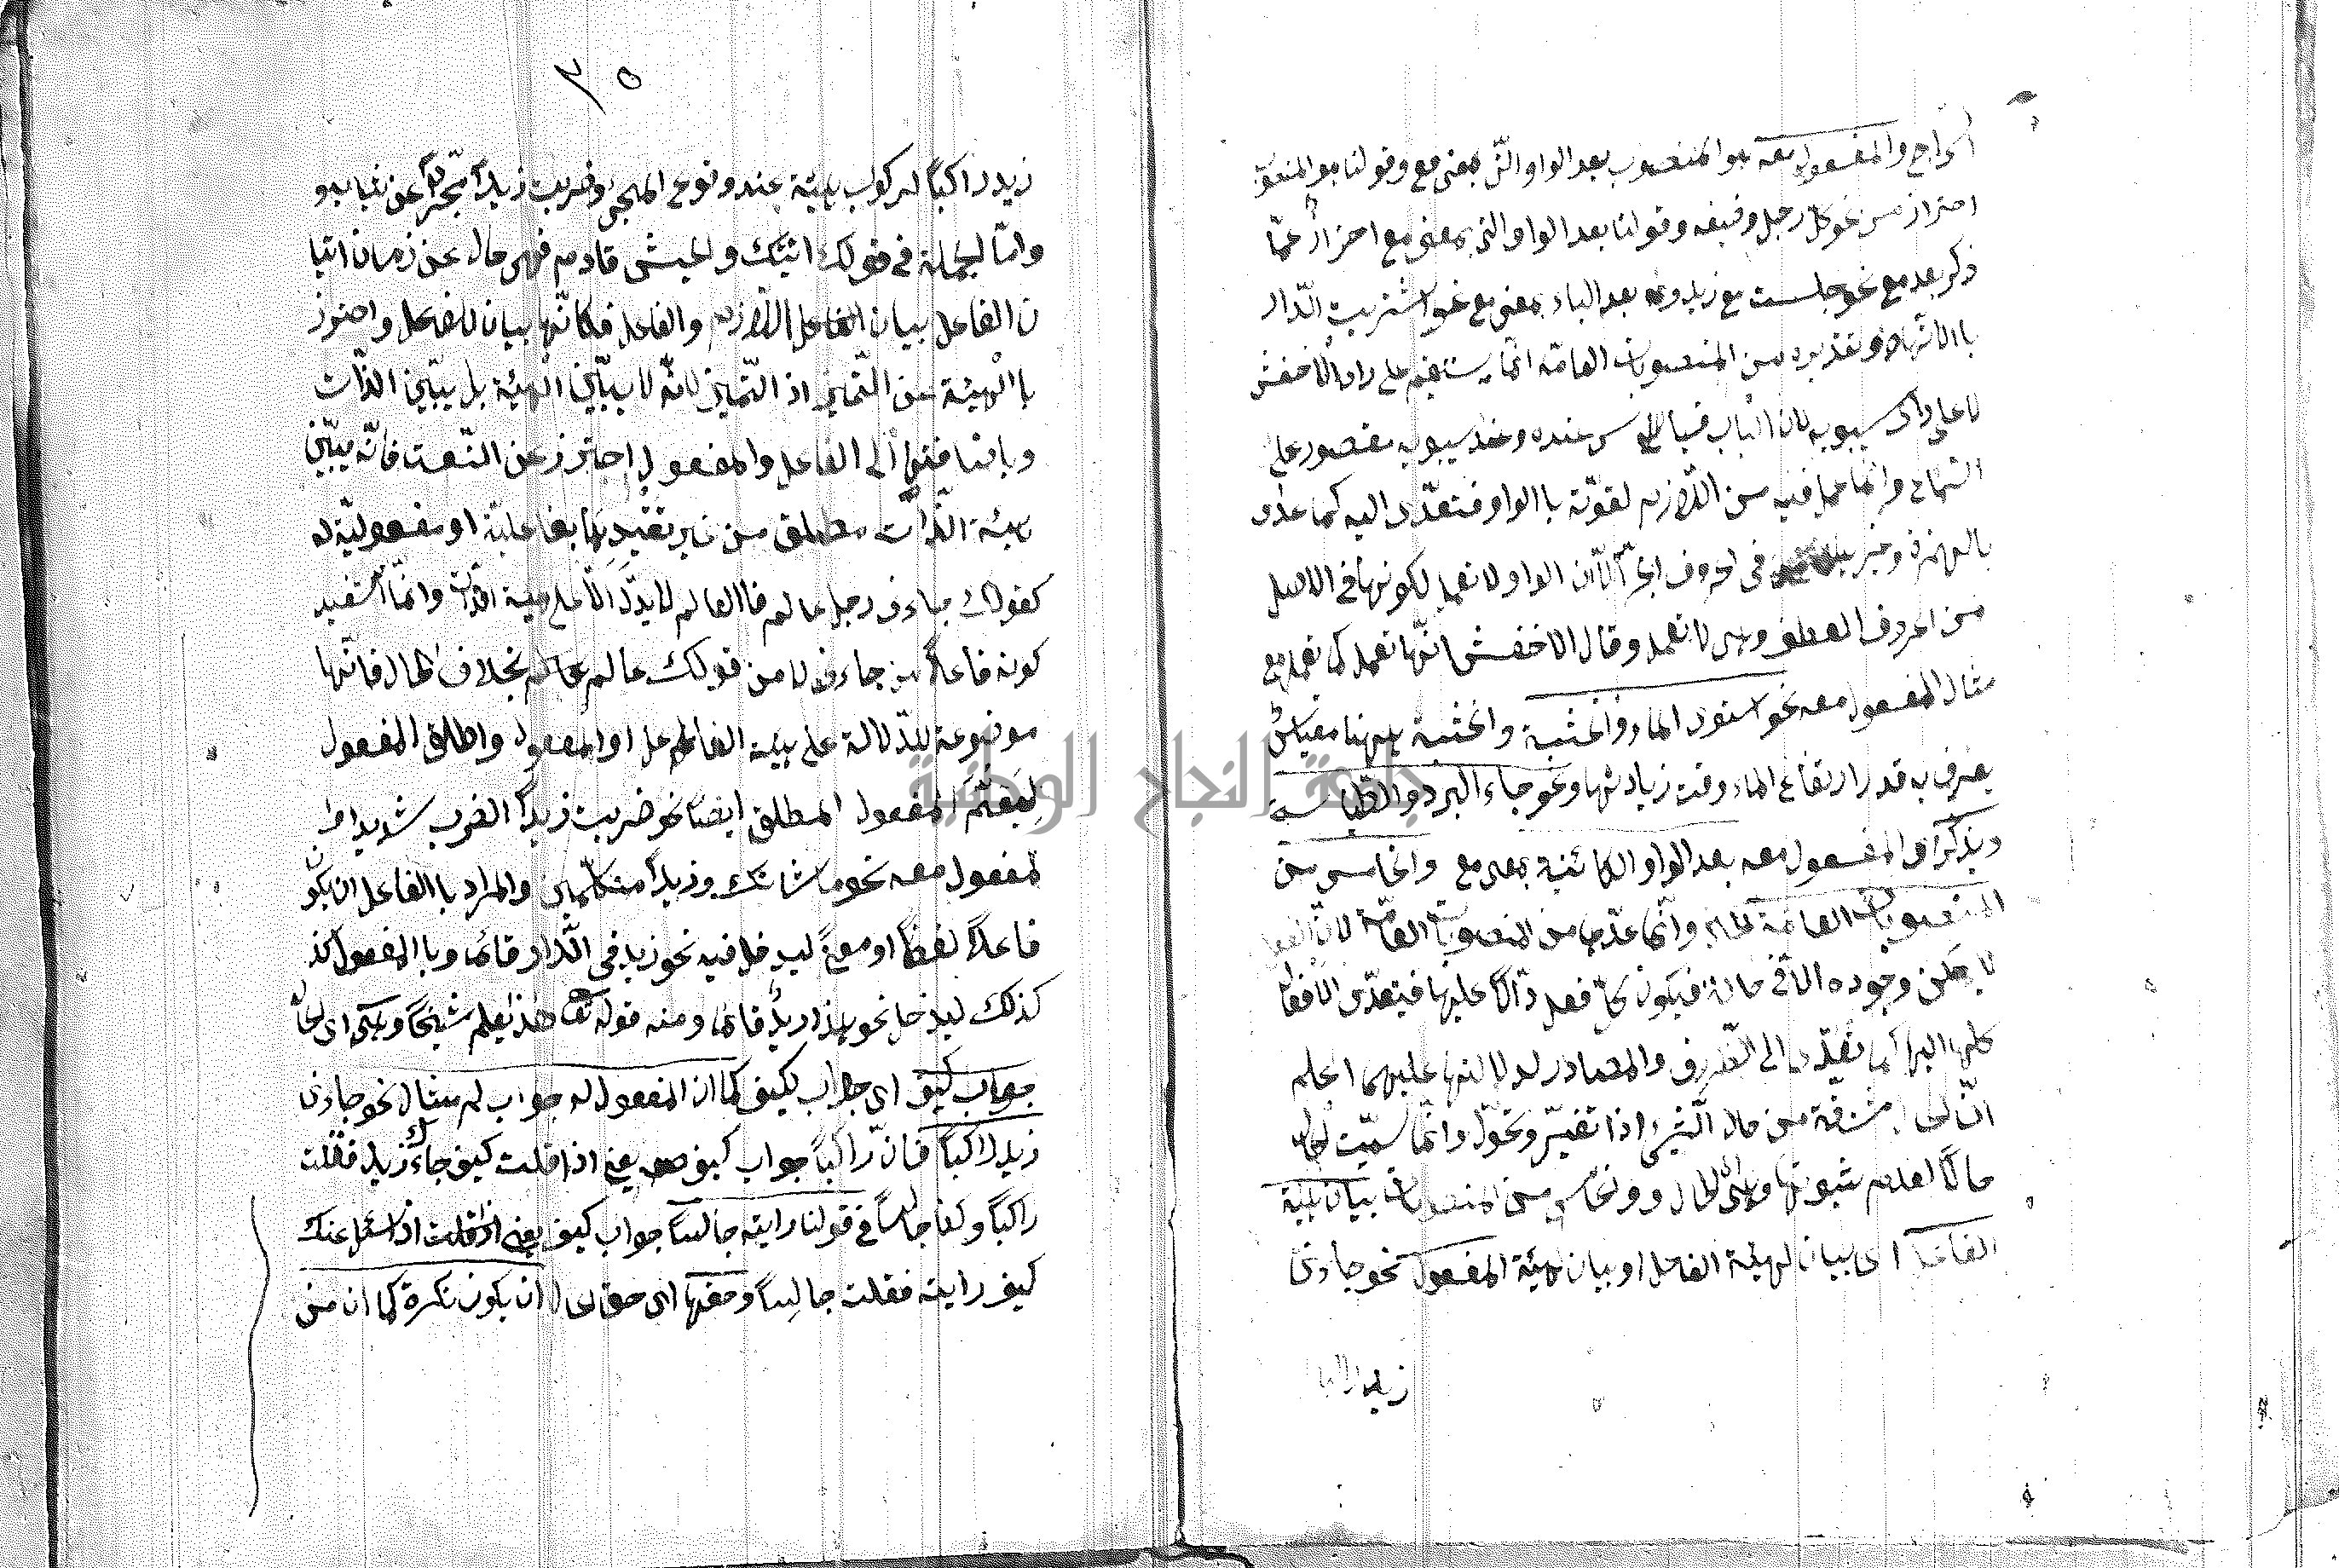 والمفعول معه هو المنصوب بعد الواو التى بمعنى مع وقولنا هو المنصوب
احتراز من نحو كل رجل وضيعته وقولنا بعد الواو التى بمعنى مع احتراز عمّا
ذكر بعد مع نحو جلست مع زيد وعن بعد الباء بمعنى مع نحو اشتريت الدّار
بالاتها وتقديره من المنصوبات العامّه انّما يستقيم على راى الاخفش
لا على راى سيبويه لان الباب قياس عنده وعند سيبويه مقصور على
السّماع وانّما عمل فيه من اللّازم لقوّته باالواو فتعدّى اليه كما عدى
بالهمزة وحر فى حروف الجر الّا ان الواو لا تعمل لكونها فى الاصل
من الحروف العطف وهى لا تعمل وقال الاخفش انّها تعمل كما تعمل مع
مثال المفعول معه نحو استوى الماء والخشبة والخشبة ههنا مقياس
يعرف به قدر ارتفاع الماء وقت زيادتها ونحو جاء البرد والطيالسة
ويذكر اى المفعول معه بعد الواو الكائنة بمعنى مع والخامس من
المنصوبات العامّة الحال وانّما عدّها من المنصوبات العامّة لانّ الفعل
لا يمكن وجوده الّا فى حالة فيكون كلّ فعل دّالّا عليها فيتعدّى الافعال
كلها اليها كما تعدّى الى الظّروف والمصادر لدلالتها عليهما اعلم
انّ الحال مشتقة من حال الشّىء اذا تغيّر وتحوّل وانّما سمّيت الحال
حالًا لعدم ثبوتها وهى اى الحال والخامس من المنصوبات بيان هيئة
الفاعل اى بيان لهيئة الفاعل او بيان لهيئة المفعول نحو جاءنى
زيد راكبا
٣٥
زيد راكباً لركوب هيئة عند وقوع المجىء وضربت زيداً مجرّداً عن ثيابه و
وامّا الجملة فى قولك اتيتك والجيش قادم فهى حال عن زمان اتيا
ن الفاعل بيان الفاعل اللّازم والفاعل فكانّها بيان للفاعل واحترز
باالهيئة عن التّمييز اذ التّمييز لانّه لا يبيّن الهيئة بل يبيّن الذّات
وباضافتها الى الفاعل والمفعول احترز عن النّعت فانّه يبيّن
هيئة الذّات مطلق من غير تقييدها بفاعليّة او مفعوليّة له
كقولك جاءنى رجل عالم فاالعالم لا يدّل الّا على هيئة الذّات وانّما استفيد
كونه فاعلًا من جاءنى لا من قولك عالم بخلاف الحال فانّها
موضوعة للدّلالة على هيئة الفاعل او المفعول واطلق المفعول
لِيَعُمَّ المفعول المطلق ايضاً نحو ضربت زيداً الضرب شديدا وا
لمفعول معه نحو ما شانك وزيداً متكلّمين والمراد باالفاعل ان يكون
فاعلاً لفظاً او معنىً ليدخل فيه نحو زيد فى الدّار قائما وباالمفعول كذ
كذلك ليدخل نحو هذا زيدٌ قائما ومنه قوله تعالى هذا بعلى شيخاً وهى اى الحال
جواب كيف اى جواب لكيف كما ان المفعول له جواب لم مثال نحو جاءنى
زيد راكباً فانّ راكباً جواب كيف يعنى اذا قلت كيف جاءك زيد فقلت
راكباً وكذا جالساً فى قولنا رايته جالساً جواب كيف يعنى اذا قلت اذ سئل عنك
كيف رايته فقلت جالِساً وحقها اى حق الحال ان يكون نكرة كما ان من
جامعة النجاح الوطنية